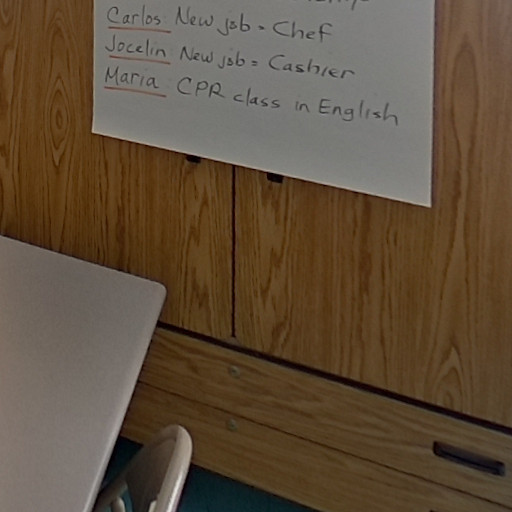 Carlos: New job = Chef
Jocelin: New job = Cashier
Maria: CPR class in English